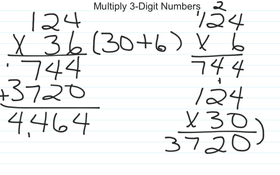 Multiply 3-Digit Numbers
124
x 36 (30+6)
744
+3720
4,464
12
124
x 6
744
1
124
x 30
3720)